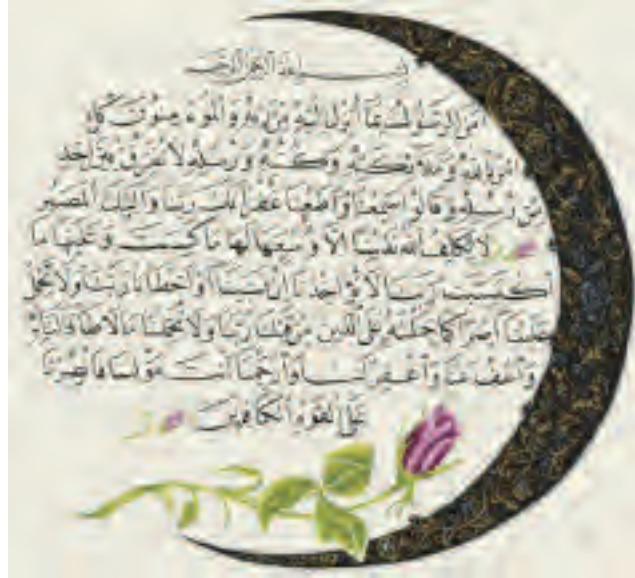 بسم الله الرحمن الرحيم
آمن الرسول بما أنزل إليه من ربه والمؤمنون كل
آمن بالله وملائكته وكتبه ورسله لا نفرق بين أحد
من رسله وقالوا سمعنا وأطعنا غفرانك ربنا وإليك المصير
لا يكلف الله نفسا إلا وسعها لها ما كسبت وعليها ما
اكتسبت ربنا لا تؤاخذنا إن نسينا أو أخطأنا ربنا ولا تحمل
علينا إصرا كما حملته على الذين من قبلنا ربنا ولا تحملنا ما لا طاقة لنا به
واعف عنا واغفر لنا وارحمنا أنت مولانا فانصرنا
على القوم الكافرين